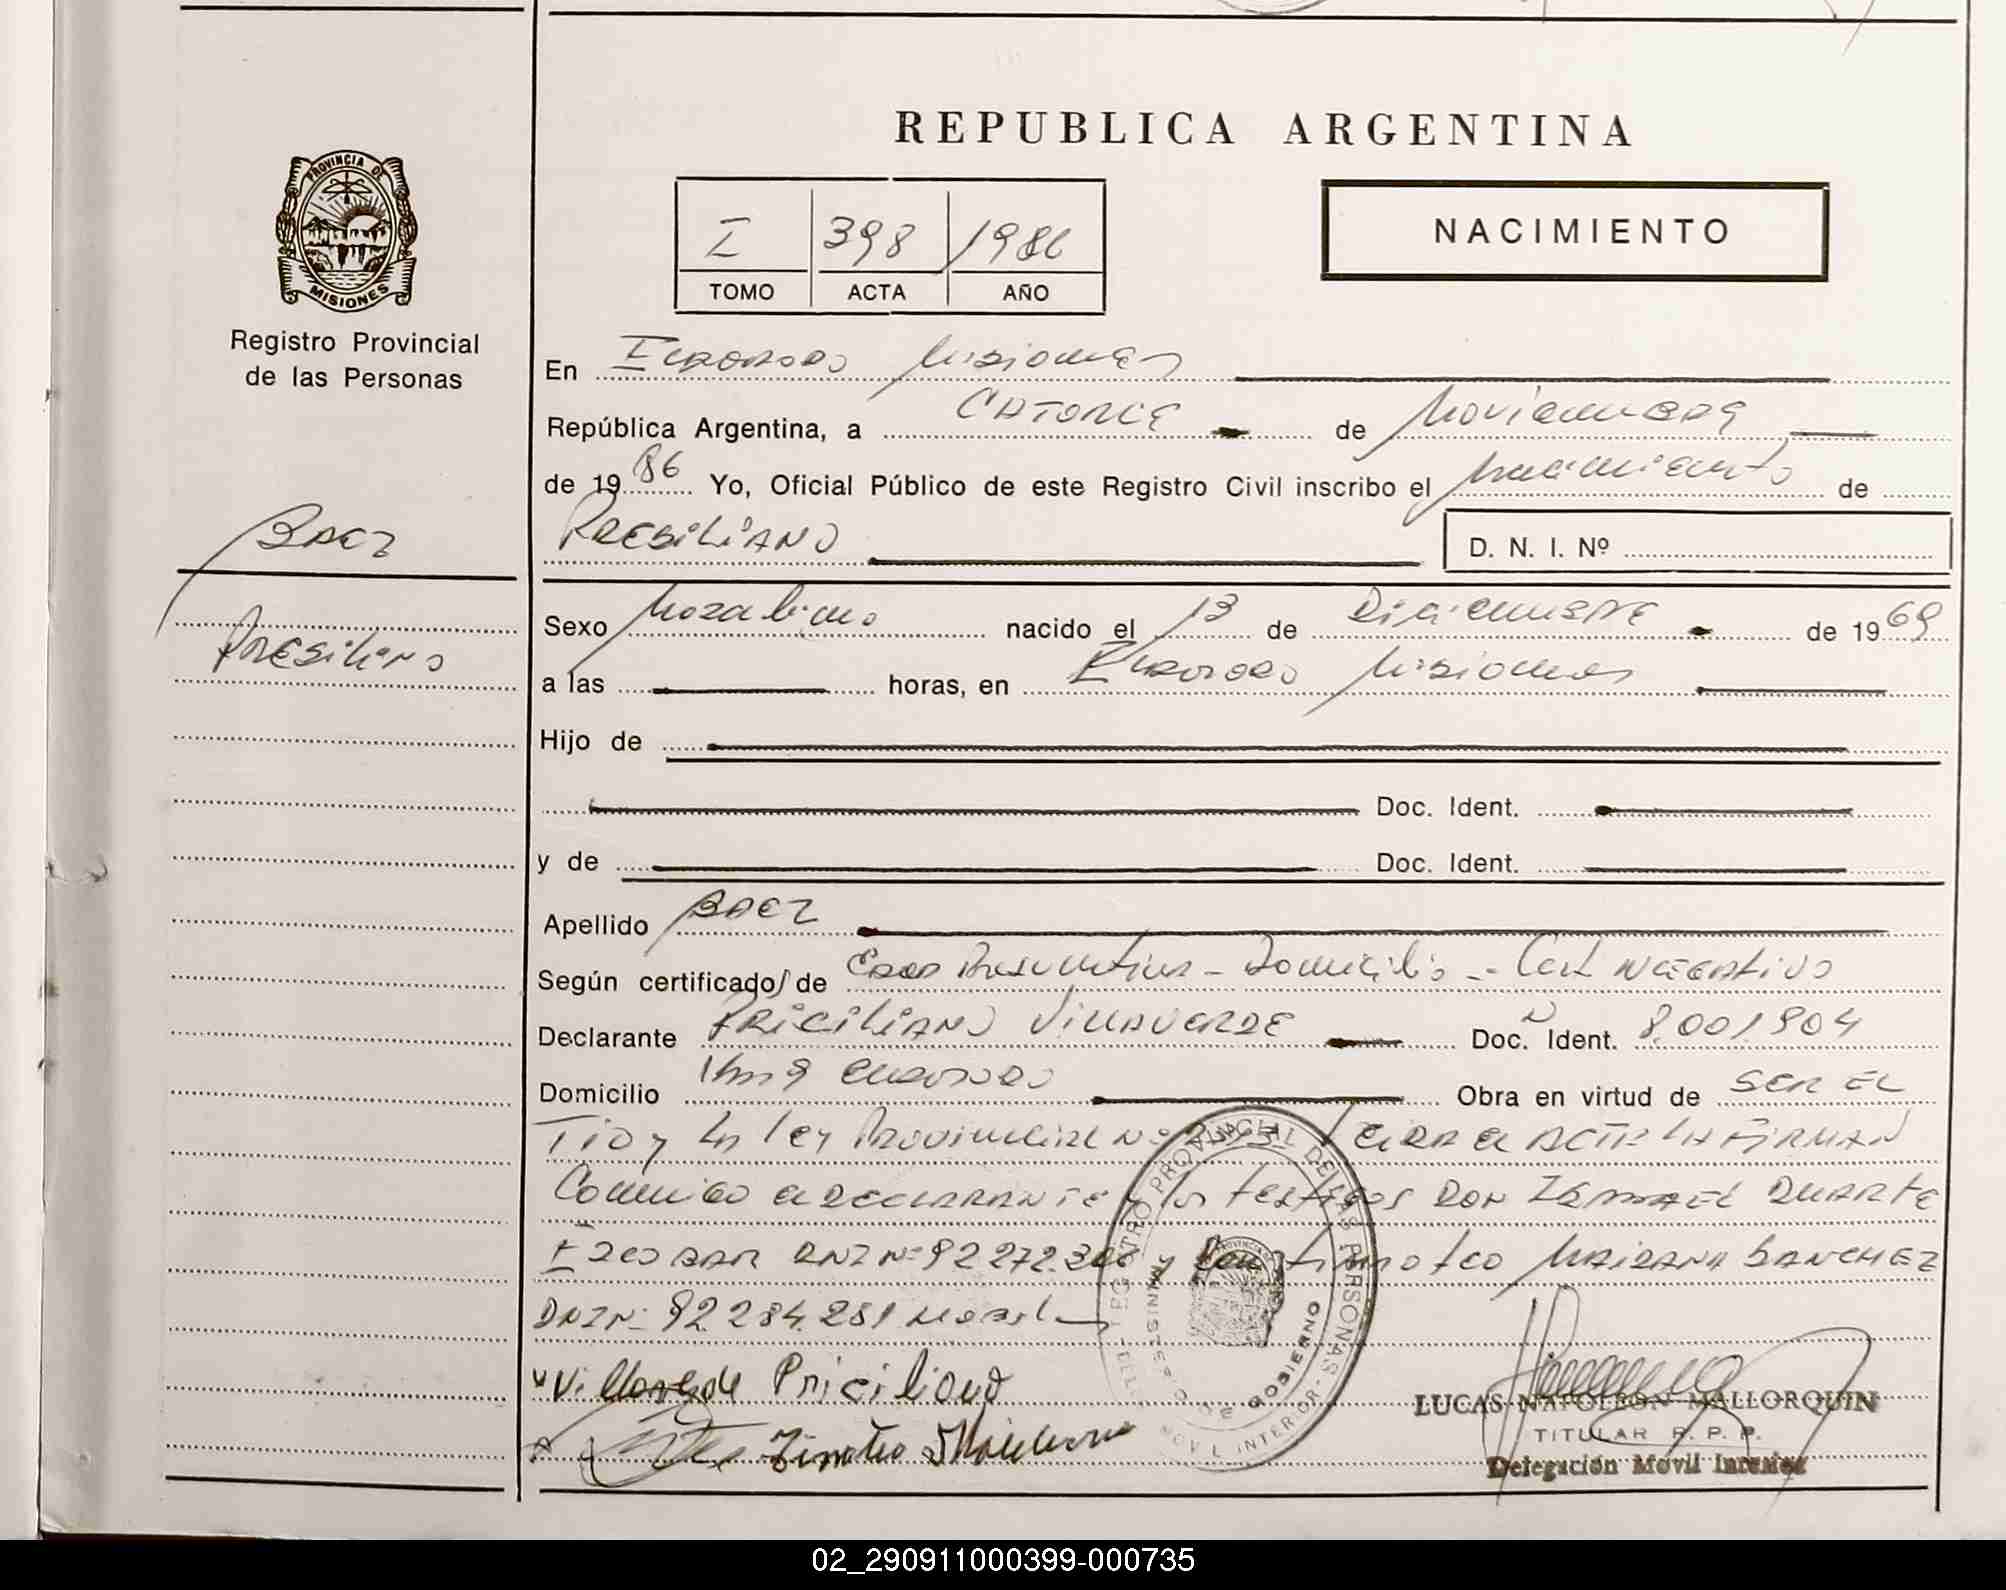 REPUBLICA ARGENTINA
PROVINCIA DE
MISIONES
Registro Provincial
de las Personas
I 398 1986
TOMO ACTA AÑO
NACIMIENTO
En Eldorado Misiones
República Argentina, a CATORCE de Noviembre
de 1986 Yo, Oficial Público de este Registro Civil inscribo el Nacimiento de
PRESILIANO
D. N. I. Nº
BAEZ
PRESILIANO
Sexo Masculino nacido el 13 de Diciembre de 1969
a las horas, en Eldorado Misiones
Hijo de
Doc. Ident.
y de Doc. Ident.
Apellido BAEZ
Según certificado/ de Edad Presuntiva - Domicilio - Cert NEGATIVO
Declarante PRICILIANO VILLAVERDE Doc. Ident. 8.001.904
Domicilio Km 9 Eldorado Obra en virtud de SER EL
TIO y La Ley Provincial Nº LEIDA EL ACTA LA FIRMAN
Conmigo el DECLARANTE y los testigos DON ISMAEL DUARTE
ESCOBAR DNI Nº 92.272. y Don Timoteo MAIDANA SANCHEZ
DNI Nº 92.284.281
Villaverde Priciliano
Timoteo Maidana
REGISTRO PROVINCIAL DE LAS PERSONAS
MINISTERIO DE GOBIERNO
MOVIL INTERIOR
LUCAS NAPOLEON MALLORQUIN
TITULAR R. P. P.
Delegación Movil Interior
02_290911000399-000735